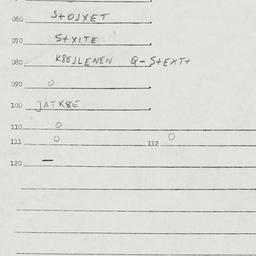 060 S+OJXET
070 S+XITE
080 K8EJLENEN Q-S+EXT+
090 O
100 JATK8E
110 O
111 O 112 O
120 —